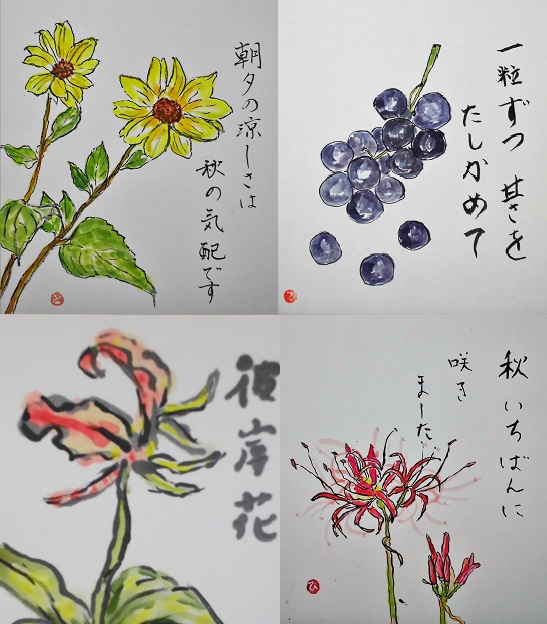 朝夕の涼しさは
秋の気配です
と
一粒ずつ 甘さを
たしかめて
ひ
彼岸花
秋いちばんに
咲き
ました
ひ